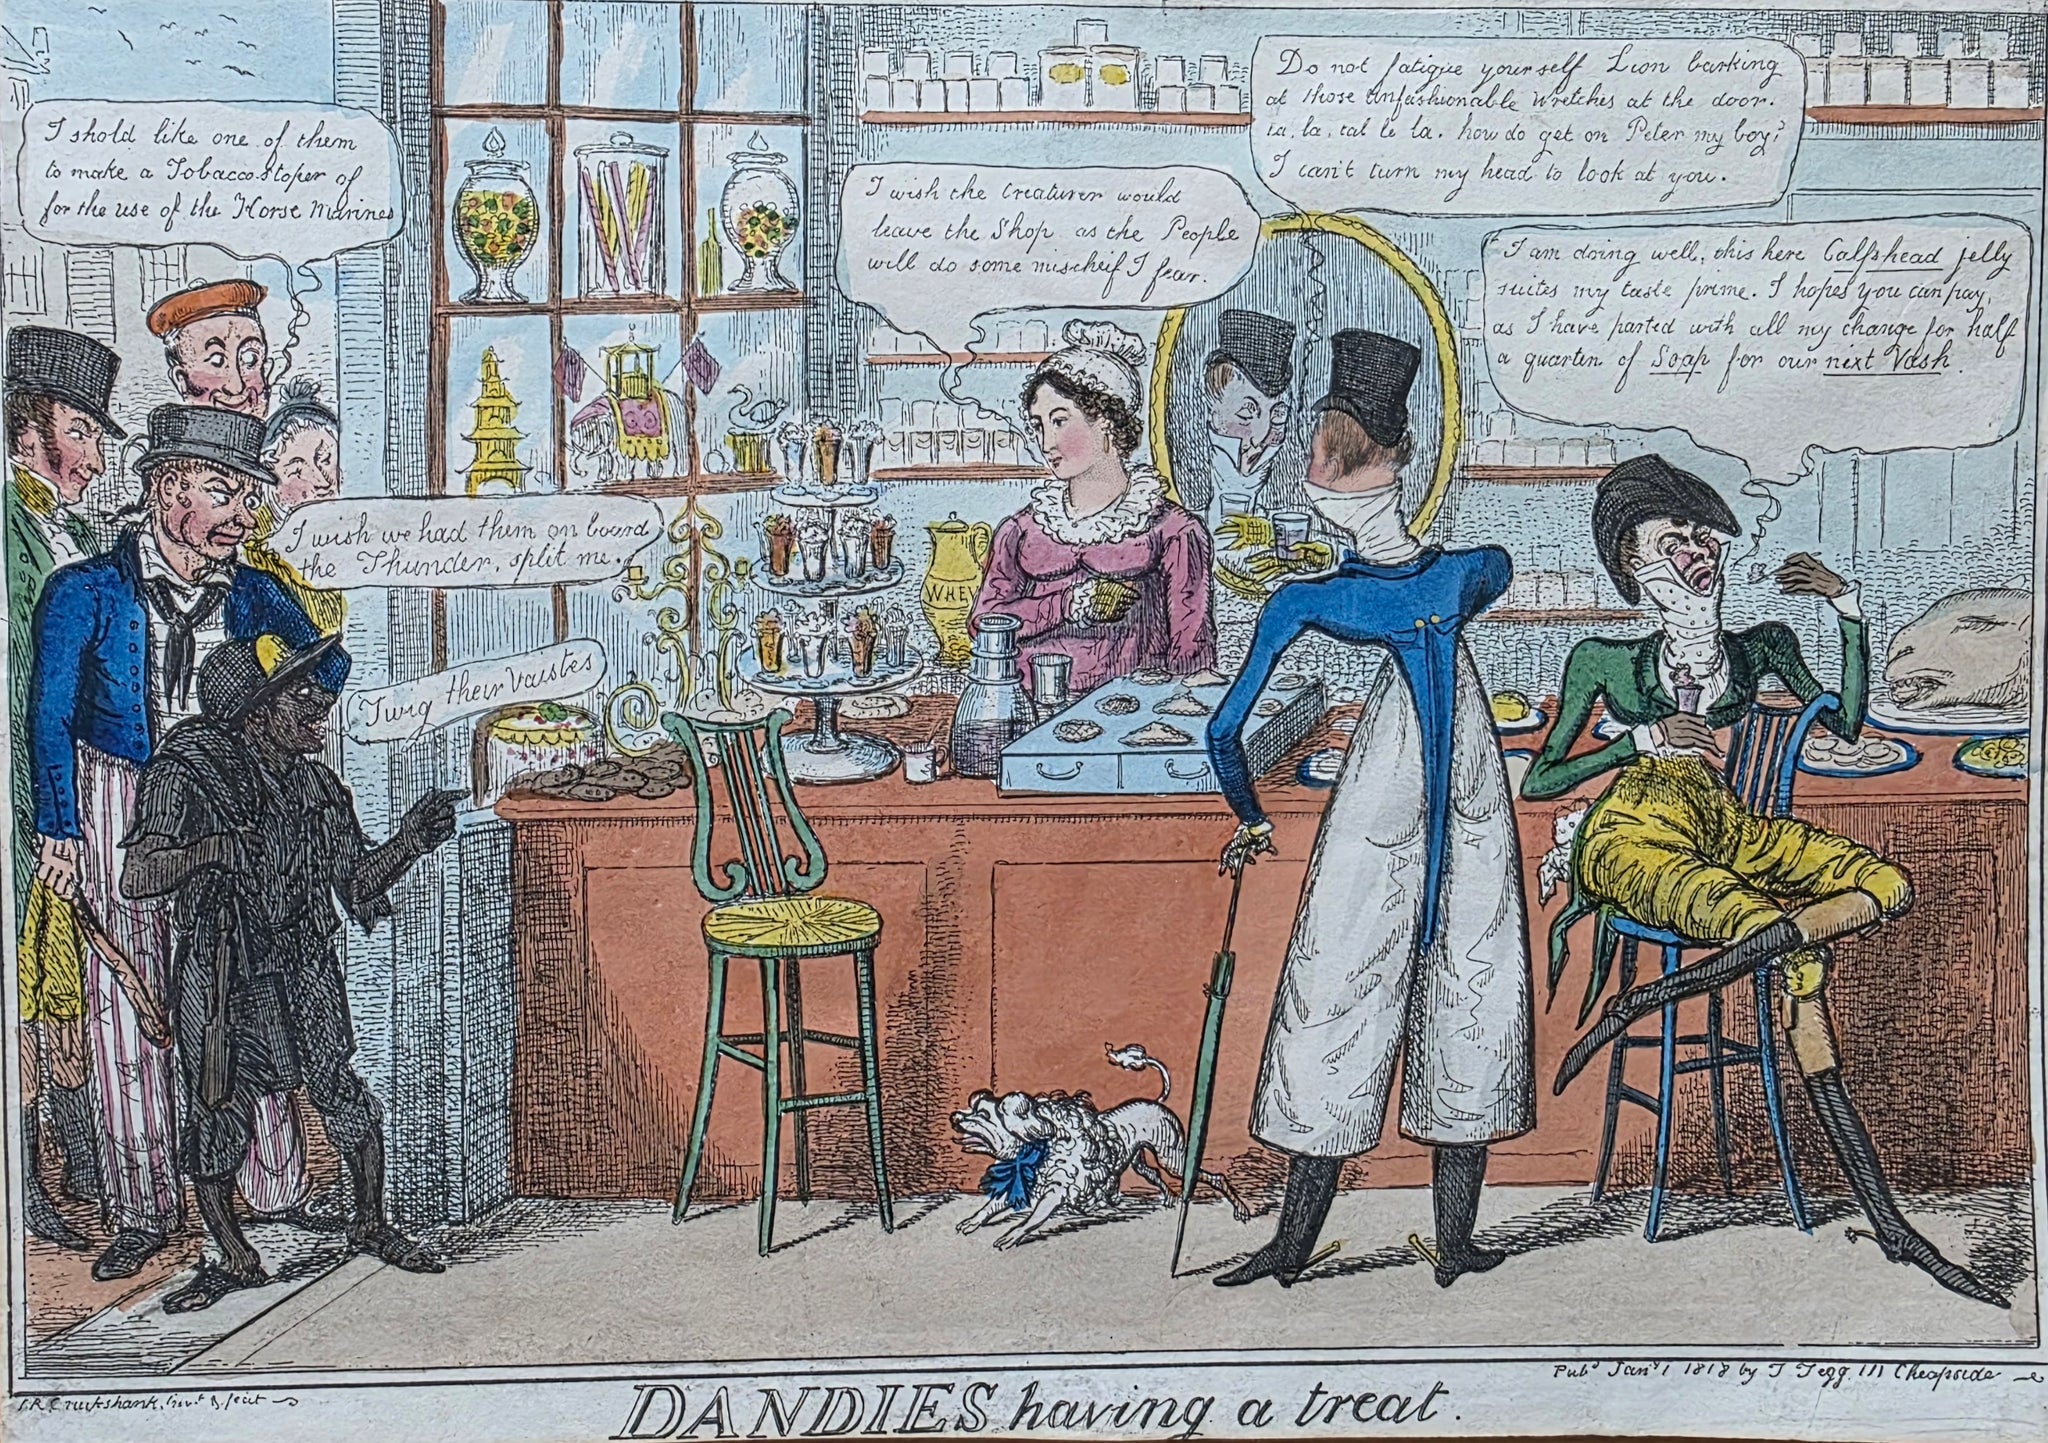 I shold like one of them
to make a Tobacco stoper of
for the use of the Horse Marines
I wish we had them on board
the Thunder, split me.
Twig their Vaistes
I wish the Creaturer would
leave the Shop as the People
will do some mischeif I fear.
Do not fatigue yourself Lion barking
at those unfashionable Wretches at the door.
ta, la, tal le la. how do get on Peter my boy?
I can't turn my head to look at you.
I am doing well, this here Calfshead jelly
suites my taste prime. I hopes you can pay,
as I have parted with all my change for half
a quartern of Soap for our next Vash.
WHEY
I.R. Cruikshank, inv.t & fecit
DANDIES having a treat.
Pub.d Jan.y 1 1818 by T Tegg 111 Cheapside